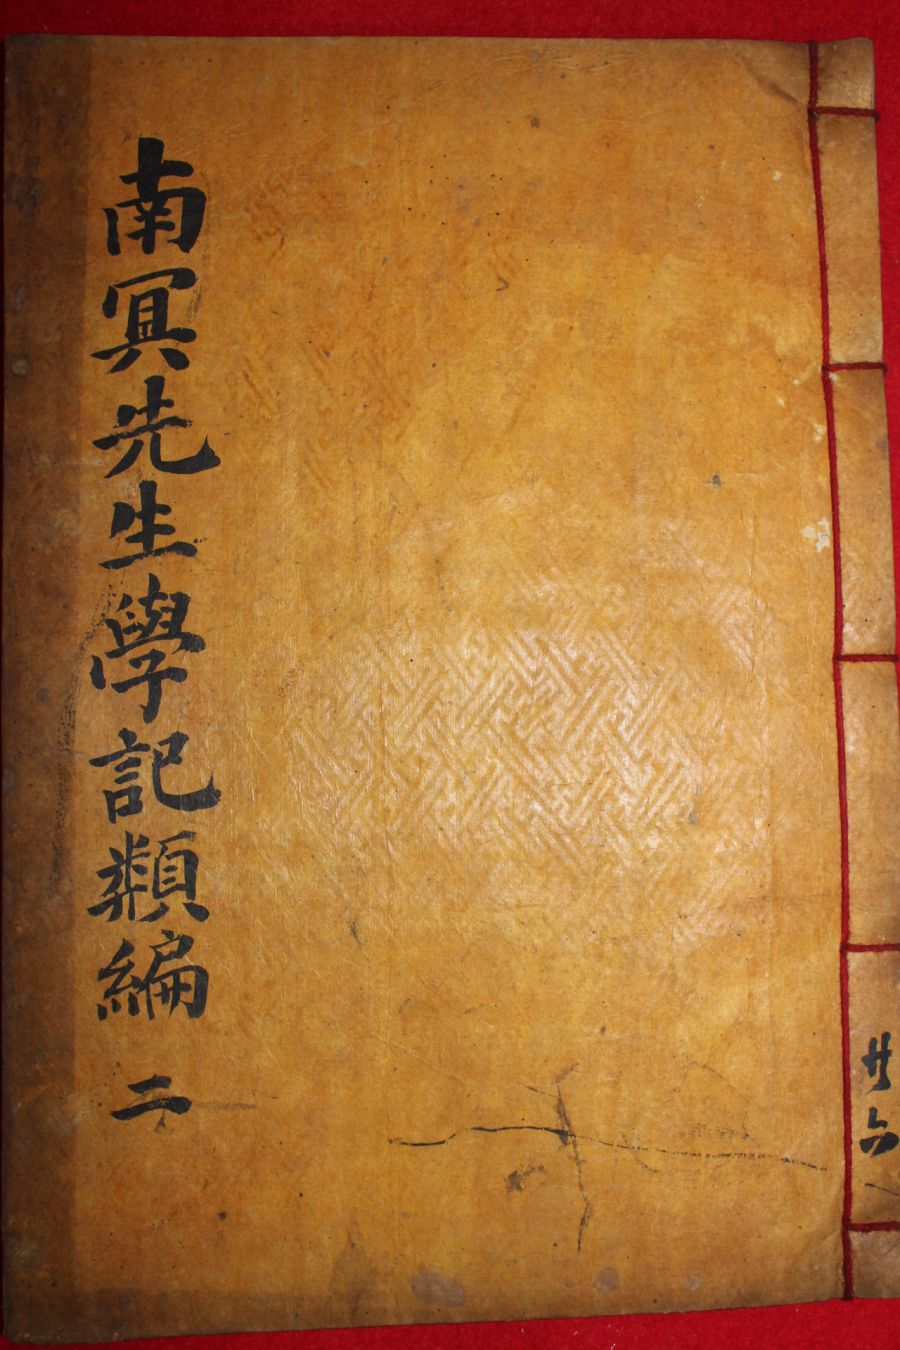 南冥先生學記類編 二